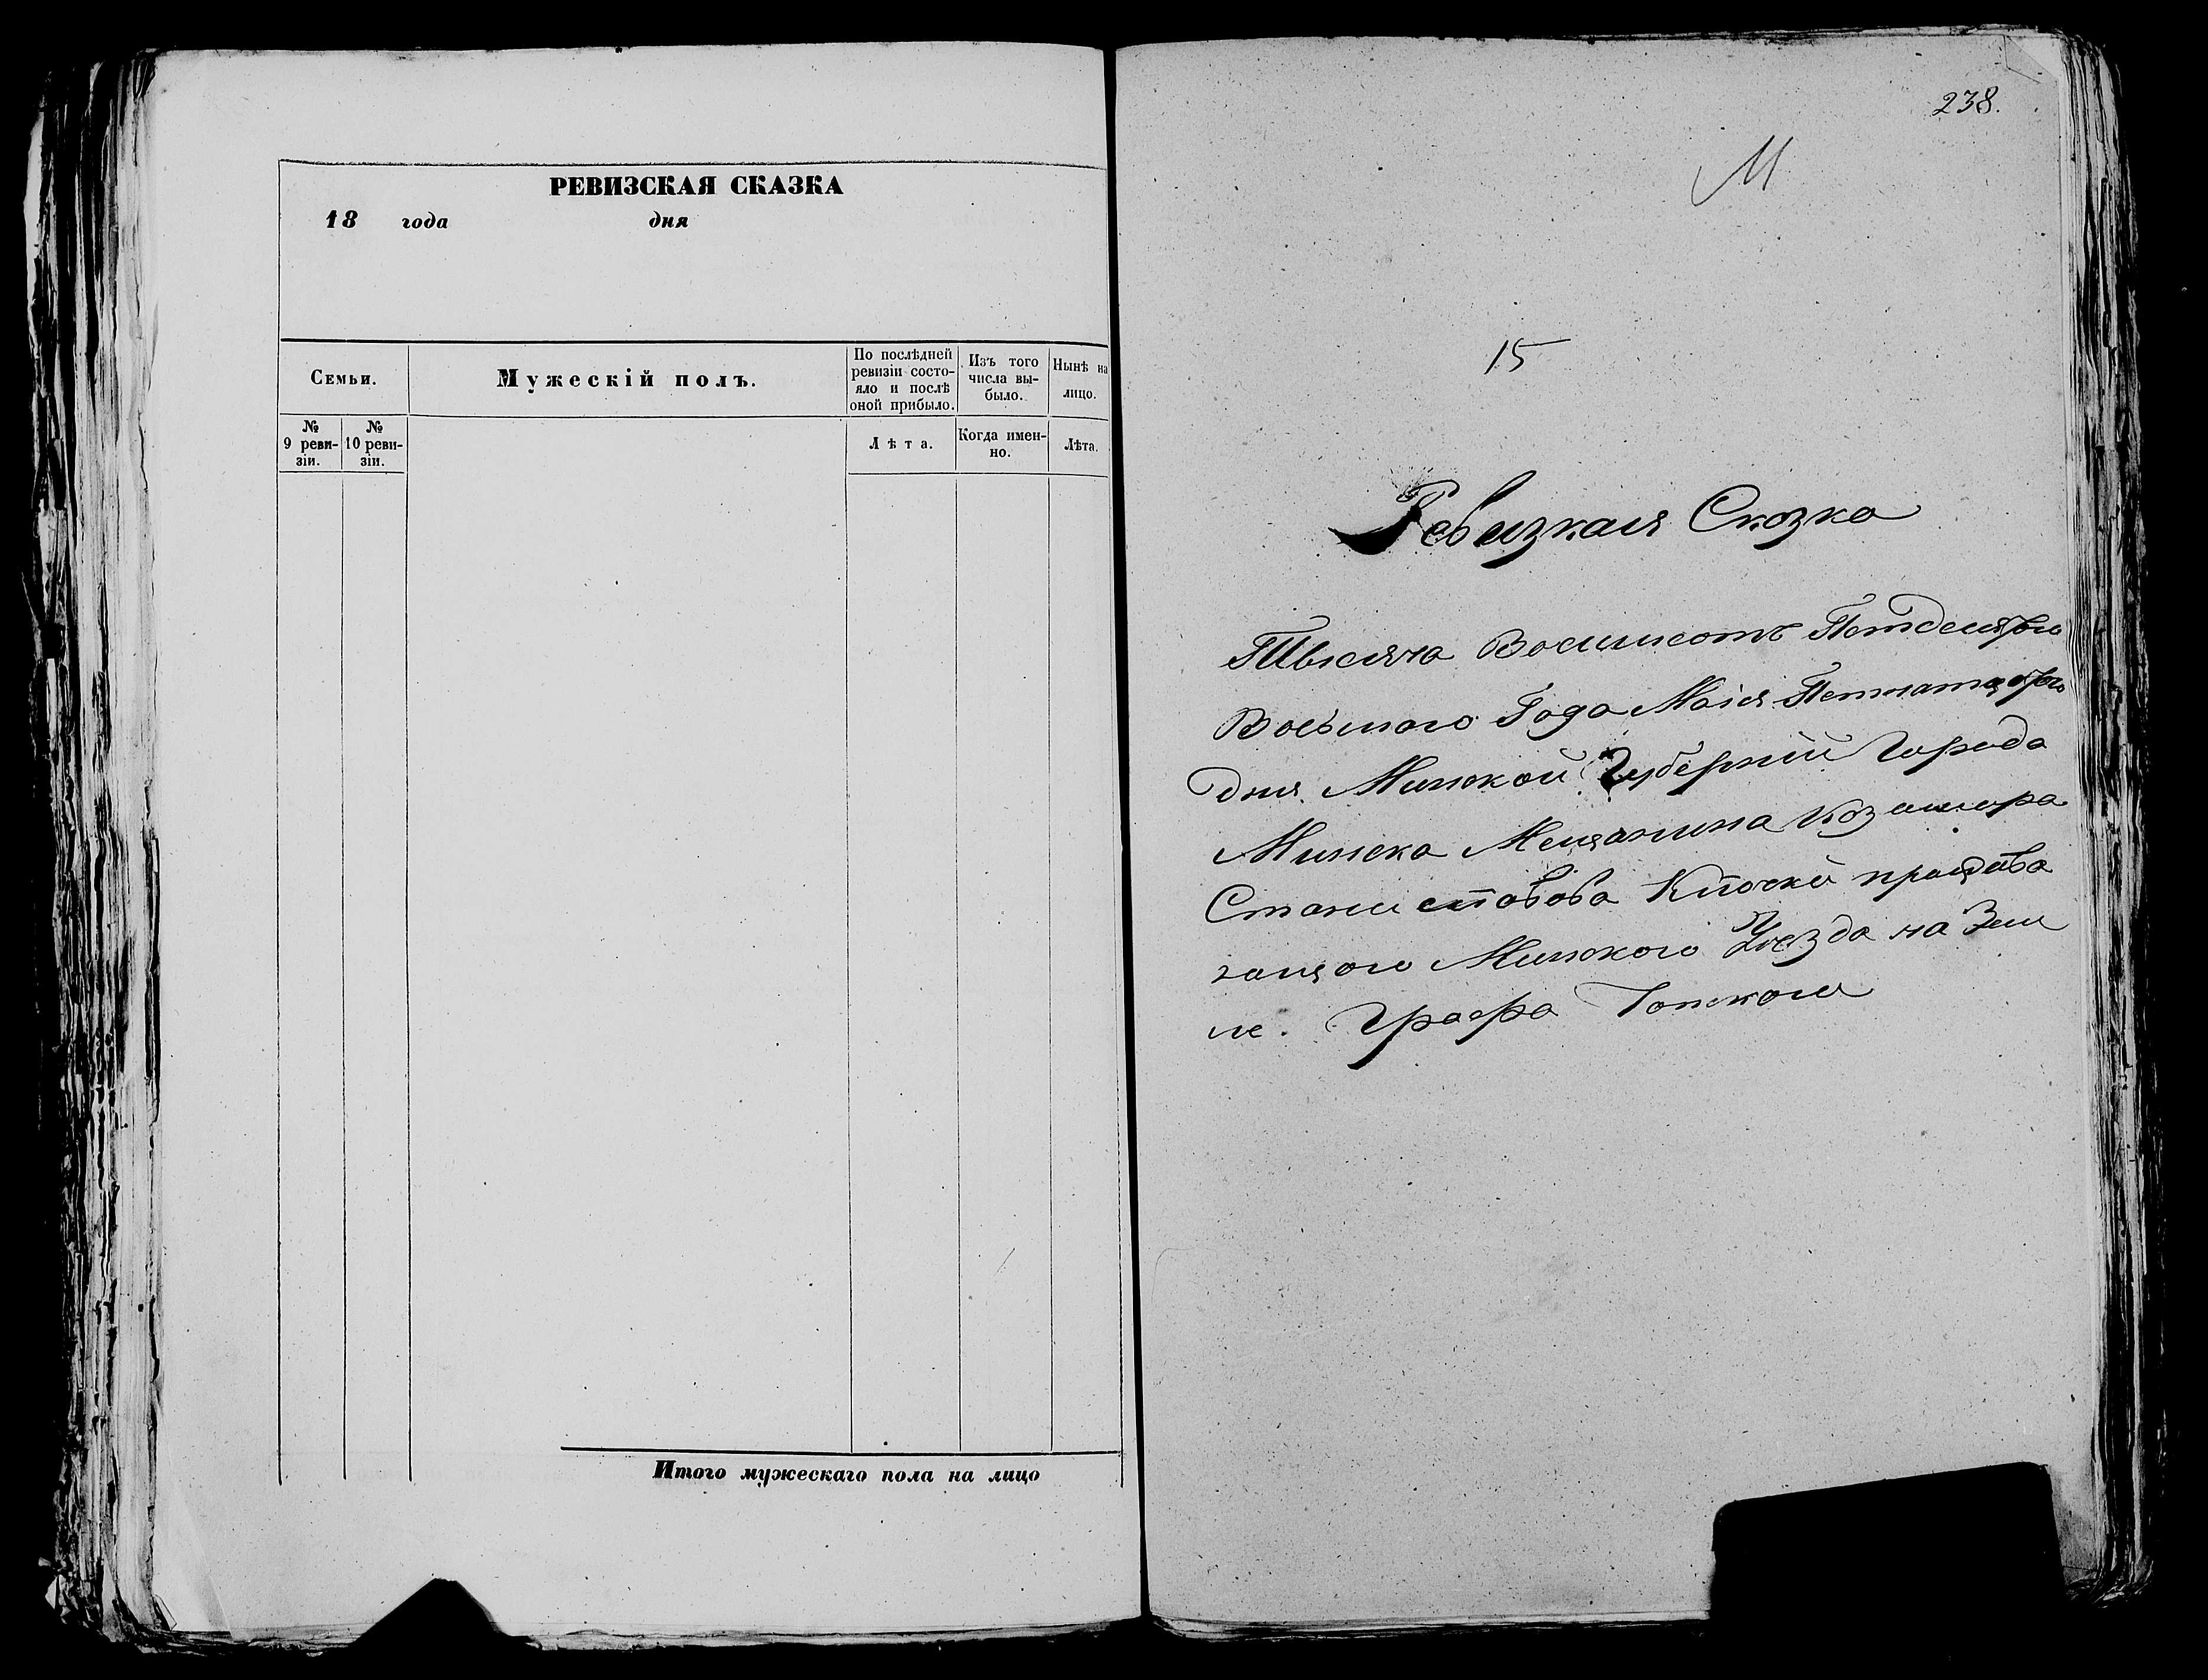 РЕВИЗСКАЯ СКАЗКА
18 года дня
Семьи.
Мужескій полъ.
По послѣдней
ревизіи состо-
яло и послѣ
оной прибыло.
Изъ того
числа вы-
было.
Нынѣ на
лицо.
№
9 реви-
зіи.
№
10 реви-
зіи.
Лѣта.
Когда имен-
но.
Лѣта.
Итого мужескаго пола на лицо
238.
М
15
Ревизкая Сказка
Тысяча Восимсотъ
Восьмого Года Мая
дня Минской Губерніи Города
Минска Мещанина Козамера
Минского Уезда на Зем
ле. Графа